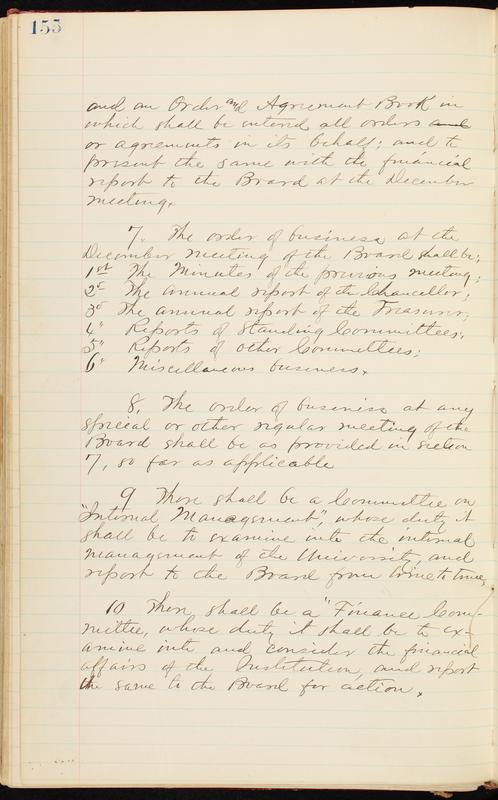 155
and an Order and Agreement Book in
which shall be entered all orders and
or agreements in its behalf; and to
present the same with the financial
report to the Board at the December
meeting.
7. The order of business at the
December meeting of the Board shall be;
1st The Minutes of the previous meeting;
2d The annual report of the Chancellor;
3d The annual report of the Treasurer;
4" Reports of Standing Committees;
5" Reports of other Committees;
6" Miscellaneous business.
8. The order of business at any
special or other regular meeting of the
Board shall be as provided in section
7, so far as applicable
9 There shall be a Committee on
"Internal Management", whose duty it
shall be to examine into the internal
management of the University, and
report to the Board from time to time,
10 There shall be a "Finance Com-
mittee, whose duty it shall be to ex-
amine into and consider the financial
affairs of the Institution, and report
the same to the Board for action.